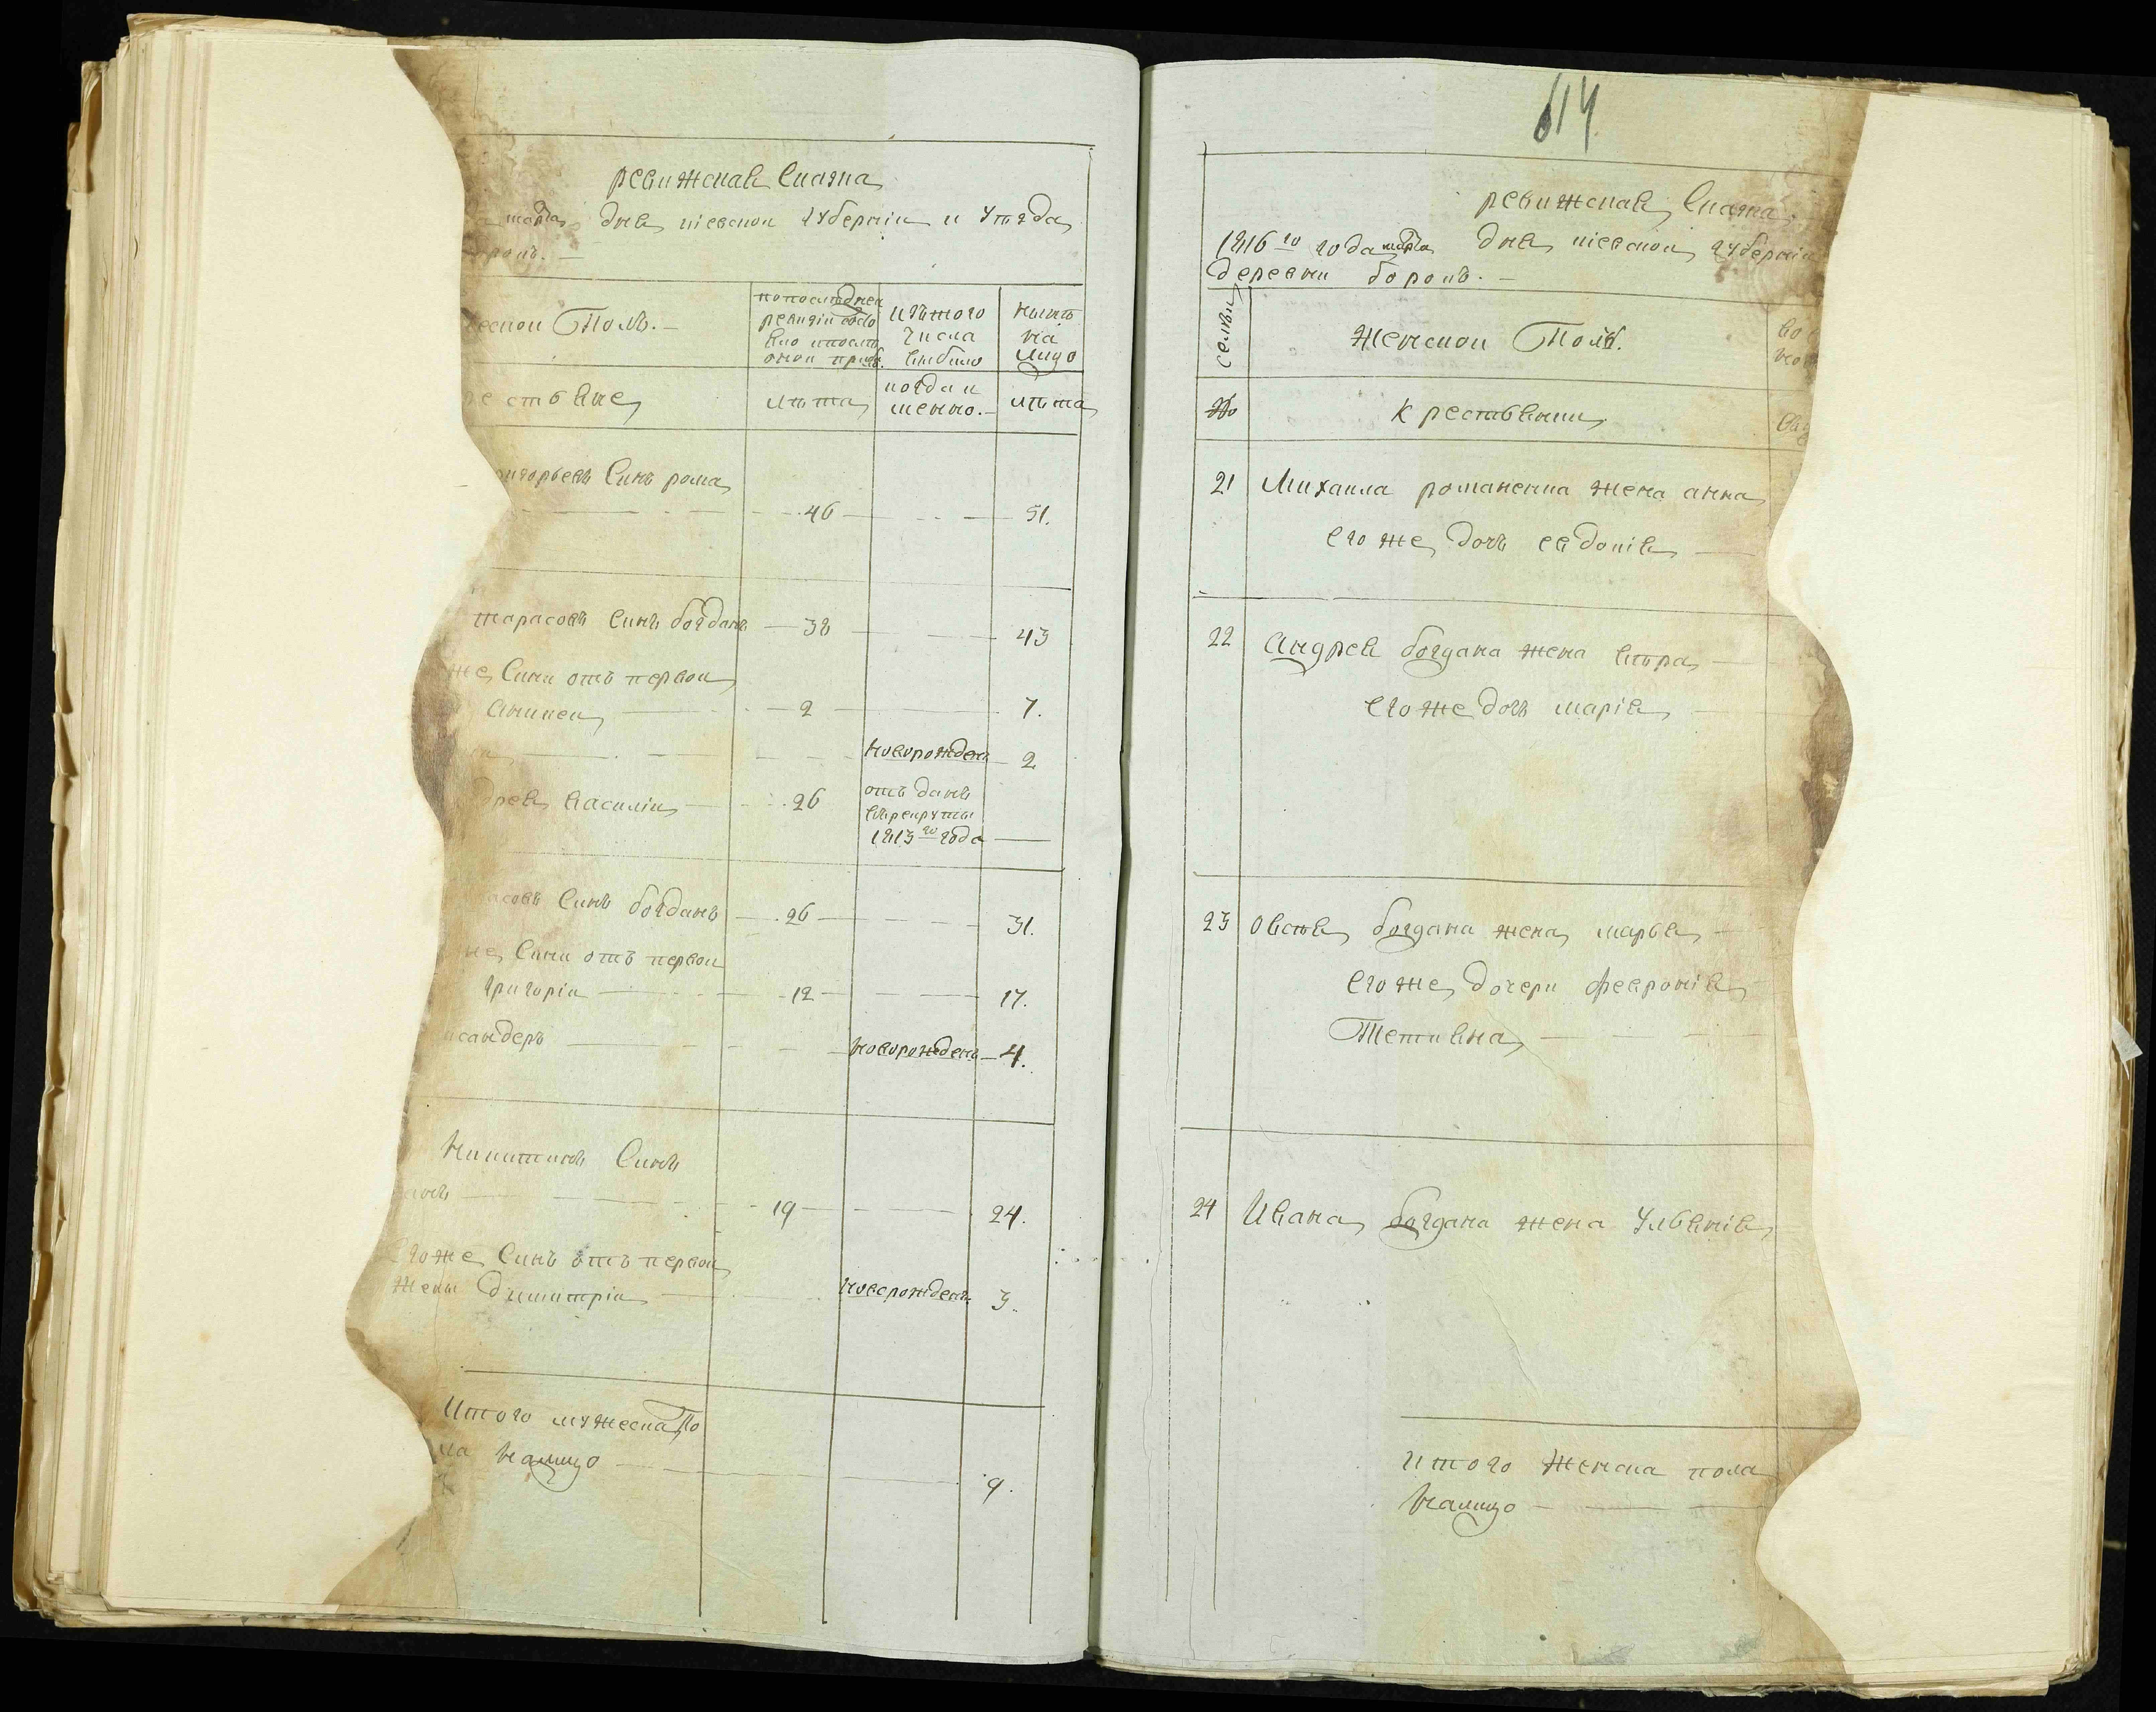 ревижская Сказка
марта дня кіевской губерніи и уезда
мужеской Полъ.
по последней
ревизіи состо
яло и после
оной прибы.
изъ того
числа
выбыло
ныне
на
лицо
лета
когда и
менно.
лета
Григорьевъ Синъ рома
46 51.
тарасовъ Синъ богданъ 38 43
же Сини отъ первой
Аникей 2 7.
новорожденъ 2
василій 26 отъ данъ
в рекруты
1813го года
Синъ богданъ 26 31.
же Сини отъ первой
григорій 12 17.
новорожденъ 4.
Никитинъ Синъ
19 24.
Его же Синъ отъ первой
жены димитрій новорожденъ 3.
Итого мужеска По
ла налицо 9.
614
ревижская Сказка
1816го года марта дня кіевской губерніи
деревни борокъ.
семьи
Женской Полъ.
Крестьянки
21 Михаила романенка жена анна
Его же дочь евдокія
22 Андрея богдана жена вера
Его же дочь марія
23 Овсея богдана жена марья
Его же дочери февронія
Тетияна
24 Ивана богдана жена Ульянія
итого женска пола
налицо